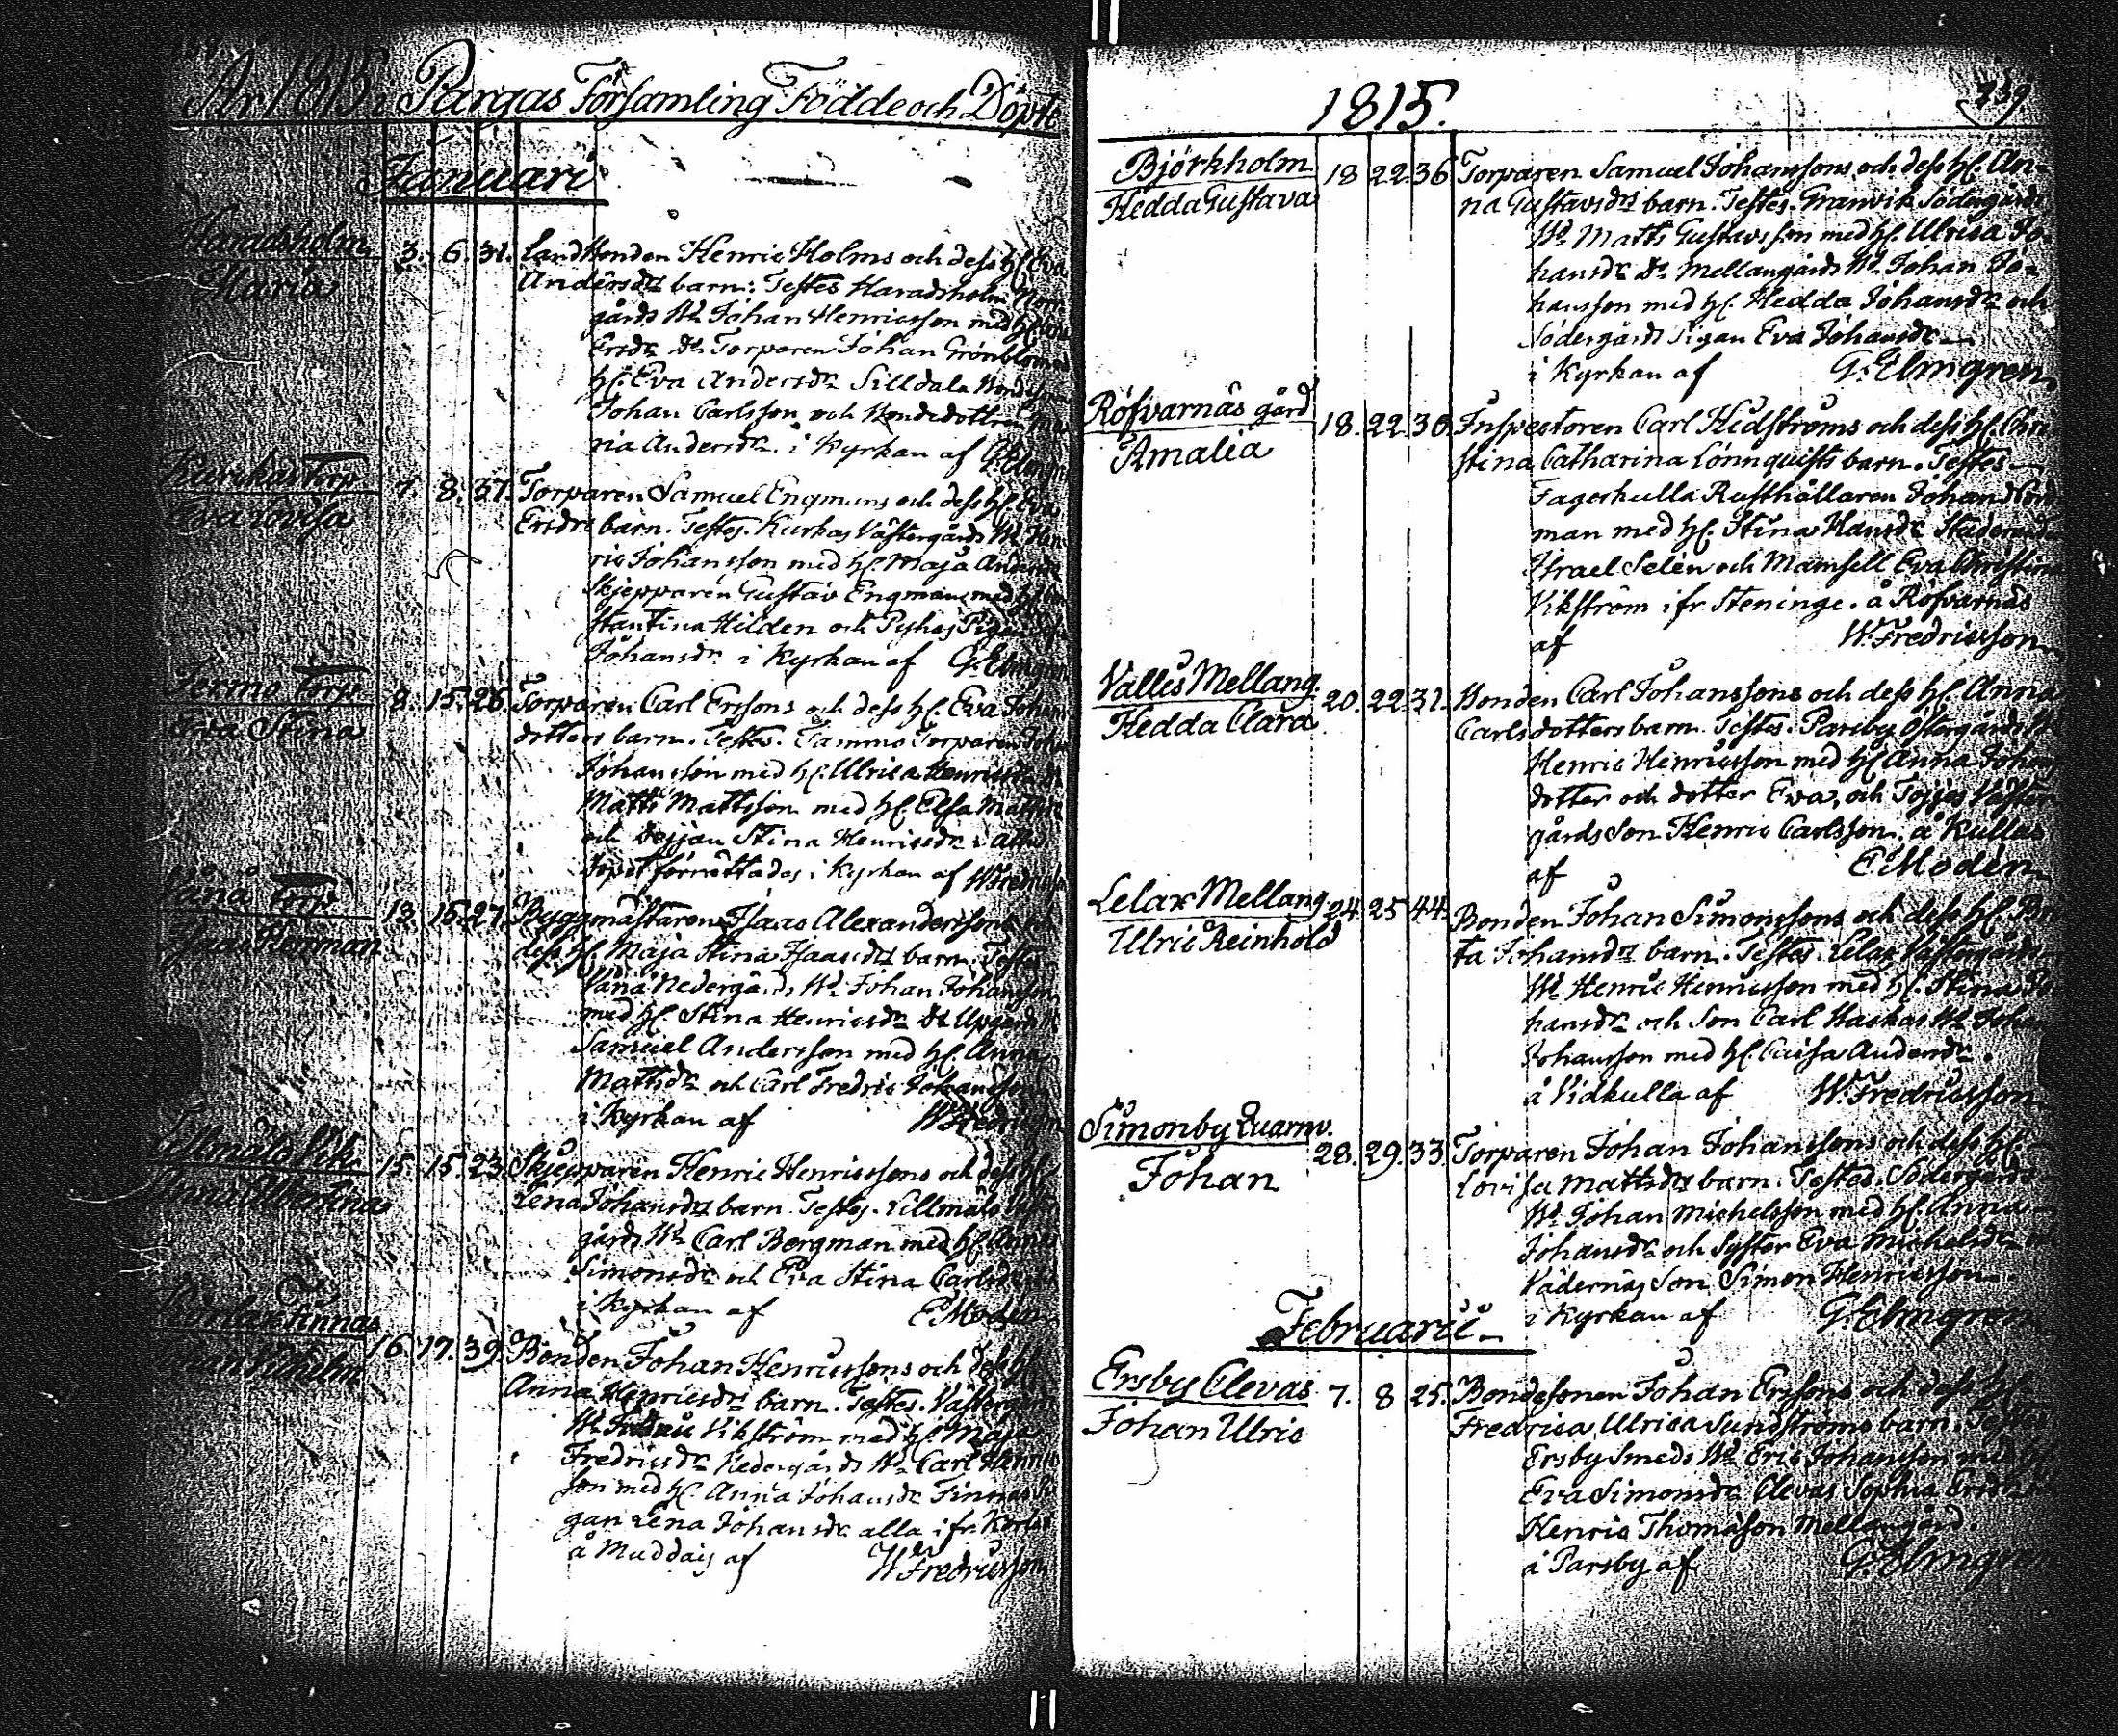 År 1815. Pargas Församling Födde och Döpte
Januari
Haradsholm
Maria
3. 6. 31. Landbonden Henric Holms och dess h. Eva
Andersdrs barn. Testes Haradsholm Norr
gårds Bd. Johan Henricsson med h.
Ersdr. Do. Torparen Johan Grönblom med
h. Eva Andersdr. Silldala Bondeson
Johan Carlsson och Bondedottren Ma
ria Andersdr. i Kyrkan af G. Elmgren
Kurckas Torp
Eva Lovisa
7. 8. 37. Torparen Samuel Engmans och dess h. Eva
Ersdrs barn. Testes. Kurkas Västergårds Bd. Hen
ric Johansson med h. Maja Andersdr
Skjepparen Gustav Engman med h. Con
stantina Hilden och Pyhas Pigan
Johansdr. i Kyrkan af G. Elmgren
Jermo Torp
Eva Stina
8. 15. 26. Torparen Carl Erssons och dess h. Eva Johans
dotters barn. Testes. Tammo Torparen Johan
Johansson med h. Ulrica Henricsdr
Matts Mattsson med h. Elsa Mattsdr
och Dejjan Stina Henricsdr. alla
Dopet förrättades i Kyrkan af W. Fredricsson
Vånå Torp
Isaac Herrman
13. 15. 27. Byggmästaren Isaac Alexanderssons och
dess h. Maja Stina Isaacsdrs barn. Testes
Vånå Nedergårds Bd. Johan Johansson
med h. Stina Henricsdr Do Upgårds Bd
Samuel Andersson med h. Anna
Mattsdr. och Carl Fredric Johansson
i Kyrkan af W. Fredricsson
Lillmälö Vik.
Anna Albertina
15. 15. 23. Skjepparen Henric Henricssons och dess h.
Lena Johansdrs barn. Testes. Lillmälö Väster
gårds Bd. Carl Bergman med h. Anna
Simonsdr. och Eva Stina Carlsdr
i Kyrkan af E. Moden
Korlax Finnas
Johan Vilhelm
16. 17. 39. Bonden Johan Henricssons och dess h.
Anna Henricsdrs barn. Testes. Västergårds
Bd. Fredric Vikström med h. Maja
Fredricsdr. Nedergårds Bd. Carl Henrics
son med h. Anna Johansdr. Finnas Pi
gan Lena Johansdr. alla ifr. Korlax
å Muddais af W. Fredricsson
1815.
239
Björkholm
Hedda Gustava
18 22. 36 Torparen Samuel Johanssons och dess h. An-
na Gustavsdrs barn. Testes. Granvik Södergårds
Bd. Matts Gustavsson med h. Ulrica Jo-
hansdr. Do. Mellangårds Bd. Johan Jo-
hansson med h. Hedda Johansdr. och
Södergårds Pigan Eva Johansdr.
i Kyrkan af G. Elmgren
Röfvarnäs gård
Amalia
18. 22. 30. Inspectoren Carl Hedströms och dess h. Chri
stina Catharina Lönnquists barn. Testes
Fagerkulla Rusthållaren Johan Nord
man med h. Stina Hansdr. Studerande
Israel Selén och Mamsell Eva Christina
Vikström ifr. Steninge. å Röfvarnäs
af W. Fredricsson
Vallis Mellang.
Hedda Clara
20. 22. 31. Bonden Carl Johanssons och dess h. Anna
Carlsdotters barn. Testes. Parsby Östergårds Bd
Henric Henricsson med h. Anna Johans
dotter och dotter Eva, och Tojjos Väster
gårds Son Henric Carlsson. å Kullas
af E. Moden
Lelax Mellang
Ulric Reinhold
24. 25 44. Bonden Johan Simonssons och dess h. Bri
ta Johansdrs barn. Testes. Lelax Västergårds
Bd. Henric Henricsson med h. Stina Jo
hansdr. och Son Carl Haskas Bd. Johan
Johansson med h. Caisa Andersdr.
å Vidkulla af W. Fredricsson
Simonby Quarnv.
Johan
28. 29. 33. Torparen Johan Johanssons och dess h.
Lovisa Mattsdrs barn. Testes. Södergårds
Bd. Johan Michelsson med h. Anna
Johansdr. och Syster Eva Michelsdr.
Vädernäs Son Simon Henricsson
i Kyrkan af G. Elmgren
Februarii
Ersby Clevas
Johan Ulric
7. 8 25. Bondesonen Johan Erssons och dess h.
Fredrica Ulrica Sundströms barn. Testes
Ersby Smeds Bd. Eric Johansson med h.
Eva Simonsdr. Clevas Sophia Ersdr.
Henric Thomasson Mellangård.
å Parsby af G. Elmgren